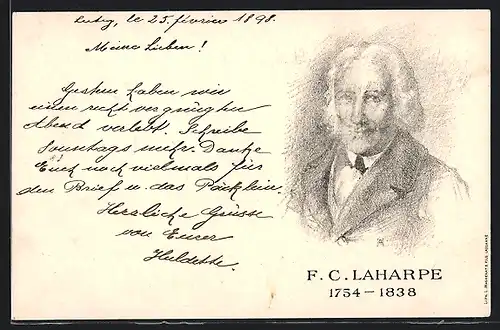 le 25. février 1898.
Meine Lieben!
Gestern haben wir
einen recht vergnügten
Abend verlebt. Schreibe
Sonntags mehr. Danke
Euch noch vielmals für
den Brief u. das Päcklein.
Herzliche Grüsse
von Eurer
F. C. LAHARPE
1754 – 1838